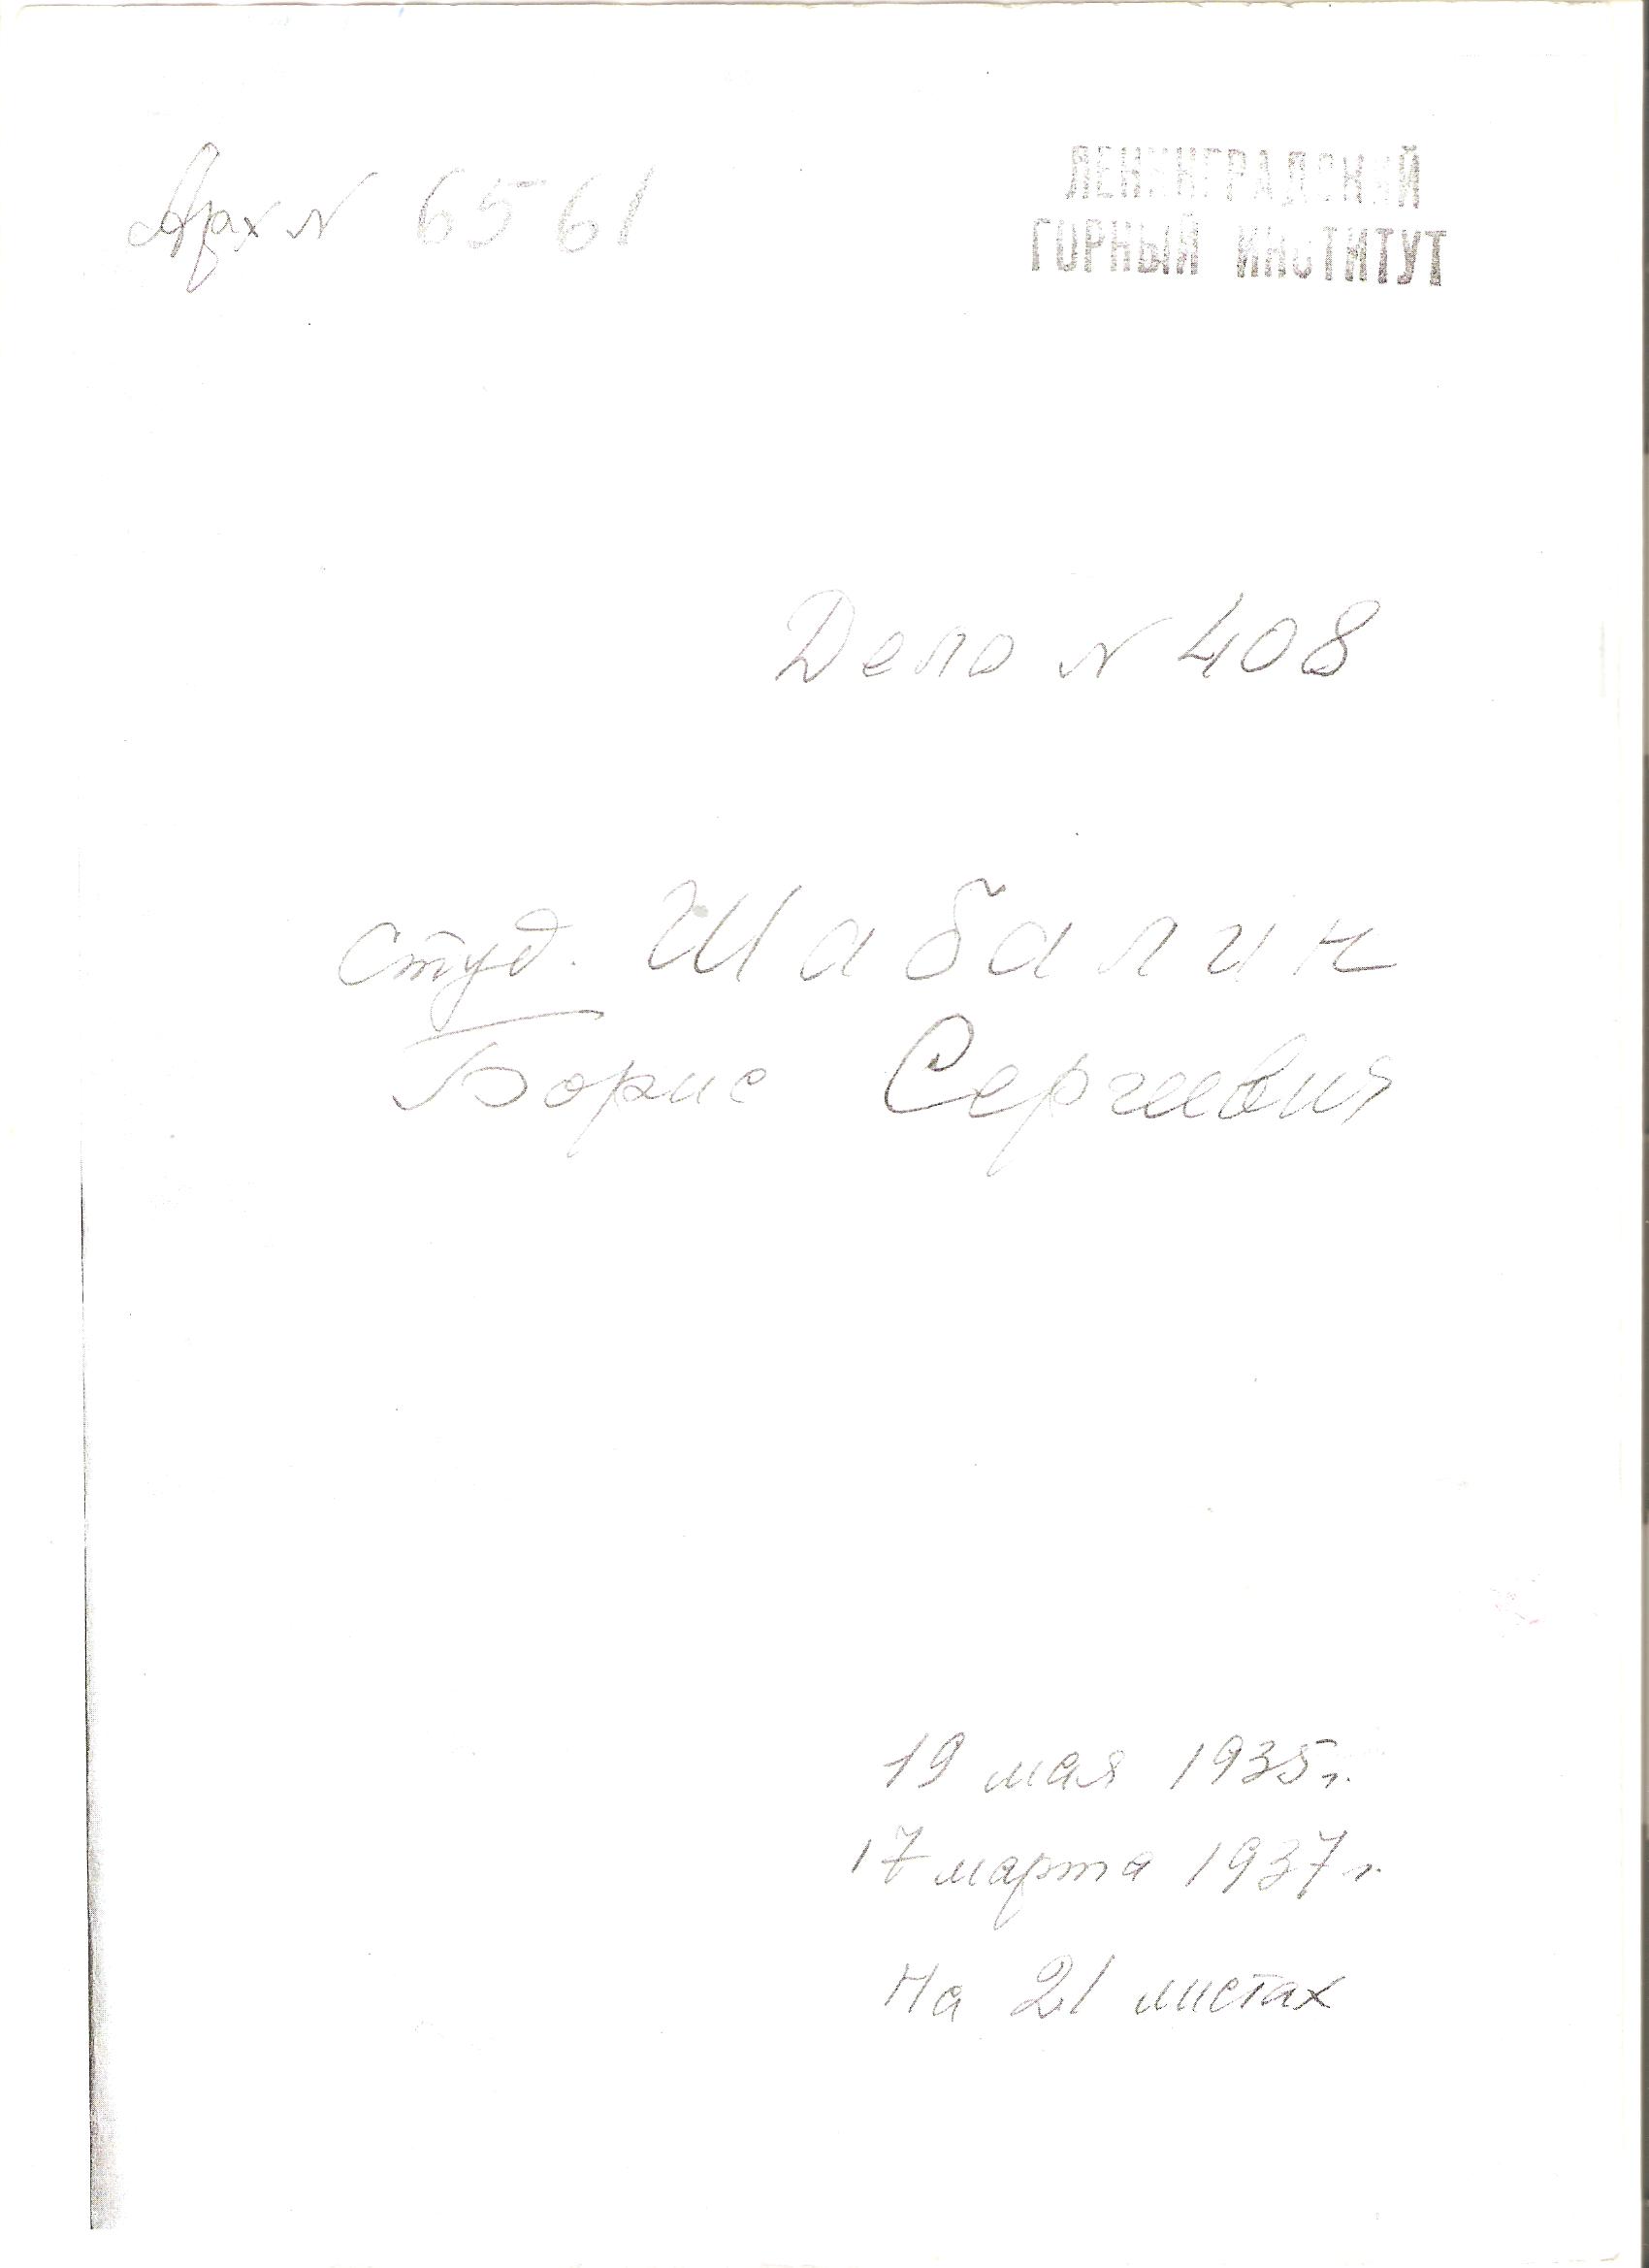 Арх № 6561
ЛЕНИНГРАДСКИЙ
ГОРНЫЙ ИНСТИТУТ
Дело № 408
студ. Шабалин
Борис Сергеевич
19 мая 1935 г.
17 марта 1937 г.
На 21 листах